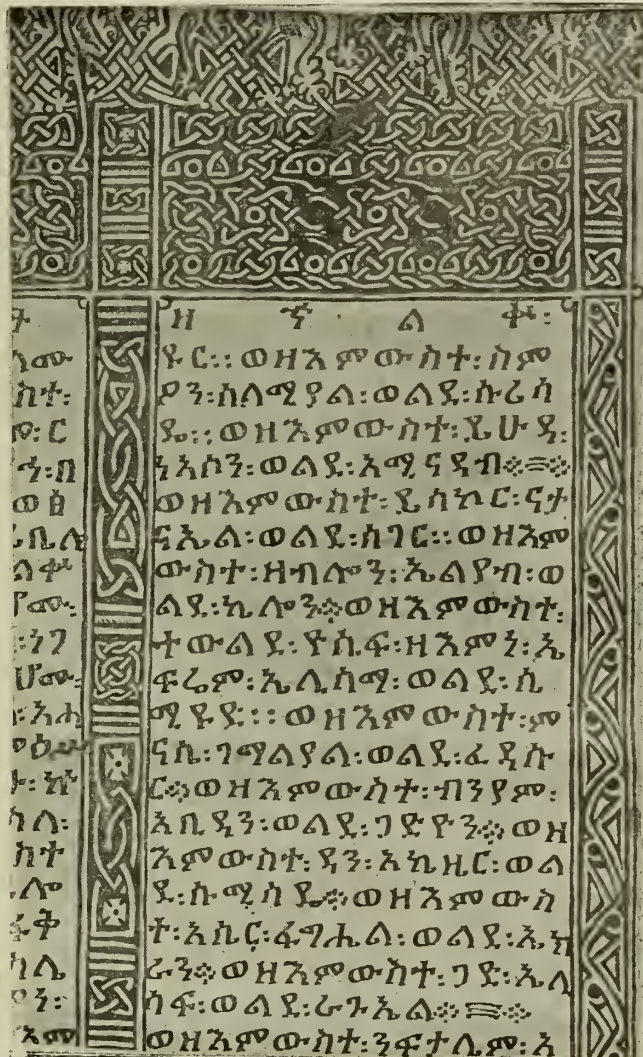 ዘኍልቍ፡
ዩር፡፡ወዘእምውስተ፡ስም
ዖን፡ሰለሚያል፡ወልደ፡ሱሬሳ
ዴ፡፡ወዘእምውስተ፡ይሁዳ፡
ነአሶን፡ወልደ፡አሚናዳብ፨
ወዘእምውስተ፡ይሳኮር፡ናታ
ናኤል፡ወልደ፡ሶገር፡፡ወዘእም
ውስተ፡ዘብሎን፡ኤልያብ፡ወ
ልደ፡ኬሎን፨ወዘእምውስተ፡
ተውልደ፡ዮሴፍ፡ዘእምነ፡ኤ
ፍሬም፡ኤሊሳማ፡ወልደ፡ሴ
ሚዩድ፡፡ወዘእምውስተ፡ም
ናሴ፡ገማልያል፡ወልደ፡ፈዳሱ
ር፨ወዘእምውስተ፡ብንያም፡
አቢዳን፡ወልደ፡ጋድዮን፨ወዘ
እምውስተ፡ዳን፡አኪዜር፡ወል
ደ፡ሱሚሳዴ፨ወዘእምውስ
ተ፡አሴር፡ፋግሔል፡ወልደ፡ኤክ
ራን፨ወዘእምውስተ፡ጋድ፡ኤለ
ሳፍ፡ወልደ፡ራጉኤል፨
ወዘእምውስተ፡ንፍታሌም፡አ